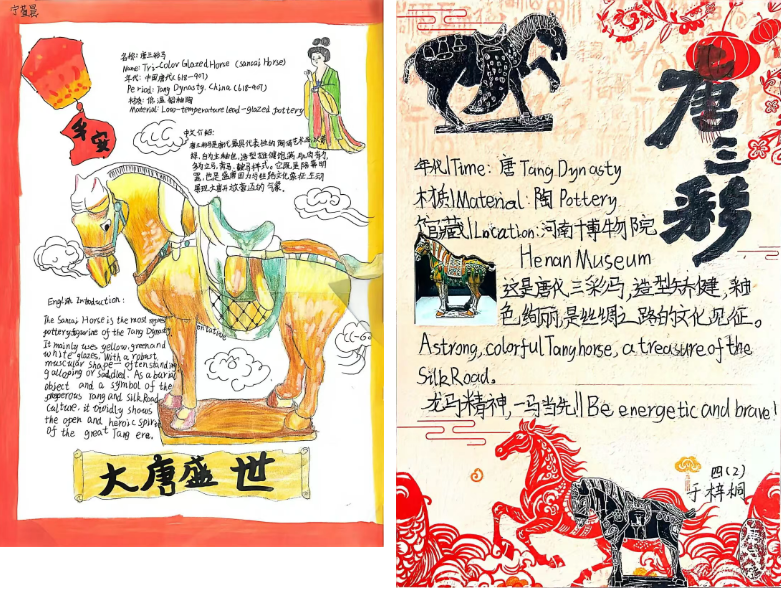 名称：唐三彩马
Name: Tri-Color Glazed Horse (Sancai Horse)
年代：中国唐代(618-907)
Period: Tang Dynasty, China (618-907)
材质：低温铅釉陶
Material: Low-temperature lead-glazed pottery
中文介绍：
English Introduction:
The Sancai Horse is the most
pottery figurine of the Tang Dynasty.
It mainly uses yellow, green and
white glazes. With a robust
muscular shape often standing
galloping or saddled. As a burial
object and a symbol of the
prosperous Tang and Silk Road
Culture, it vividly shows
the open and heroic spirit
of the great Tang era.
大唐盛世
唐三彩
年代|Time: 唐 Tang Dynasty
材质|Material: 陶 Pottery
馆藏|Location: 河南博物院
Henan Museum
这是唐代三彩马,造型矫健,釉
色绚丽,是丝绸之路的文化见证。
A strong, colorful Tang horse, a treasure of the
Silk Road.
龙马精神,一马当先!|Be energetic and brave!
四(2)
于梓桐